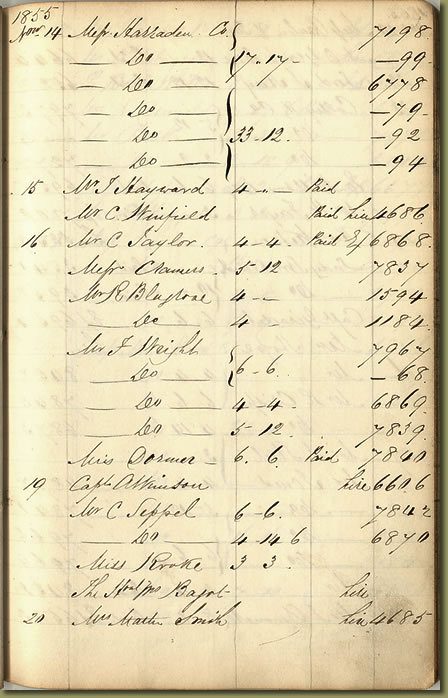 1855
Novr 14 Messrs Harraden Co. 7198
— Do — 17-17- — 99
— Do — 6778
— Do — — 79
— Do — 33-12. — 92
— Do — — 94
15 Mr J Hayward 4 - - Paid
Mr C. Winfield Paid 4686
16 Mr C Taylor. 4-4. Paid 6868.
Messrs Cramers 5-12 7837
Mr R Blagrove 4 - - 1594
— Do 4 - 1184.
Mr J Wright 7967
— Do — 6-6. — 68.
— Do — 4-4 6869.
— Do — 5-12. 7839.
Miss Dormer - 6. 6. Paid 7840
19 Capt Atkinson 6606
Mr C Jeppel 6-6. 7842
— Do — 4-14 6 6870
Miss Kroke 3 3.
The Honl Mrs Bagot
20 Mrs Smith 4685